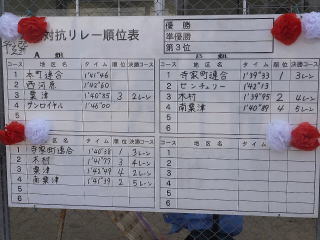 対抗リレー順位表
優勝
準優勝
第3位
コース 地区名 タイム 順位 決勝コース
1 本町連合 1'41"46
2 西河原 1'42"60
3 粟津 1'40"85 3 2レーン
4 サンロイヤル 1'46"00
コース 地区名 タイム 順位 決勝コース
1 寺家町連合 1'39"33 1 3レーン
2 センチュリー 1'42"13
3 木村 1'39"95 2 4レーン
4 南粟津 1'40"89 4 5レーン
コース 地区名 タイム 順位 決勝コース
1 寺家町連合 1'40"38 1 3レーン
2 木村 1'41"77 3 4レーン
3 粟津 1'42"49 4 2レーン
4 南粟津 1'41"39 2 5レーン
1
2
3
4